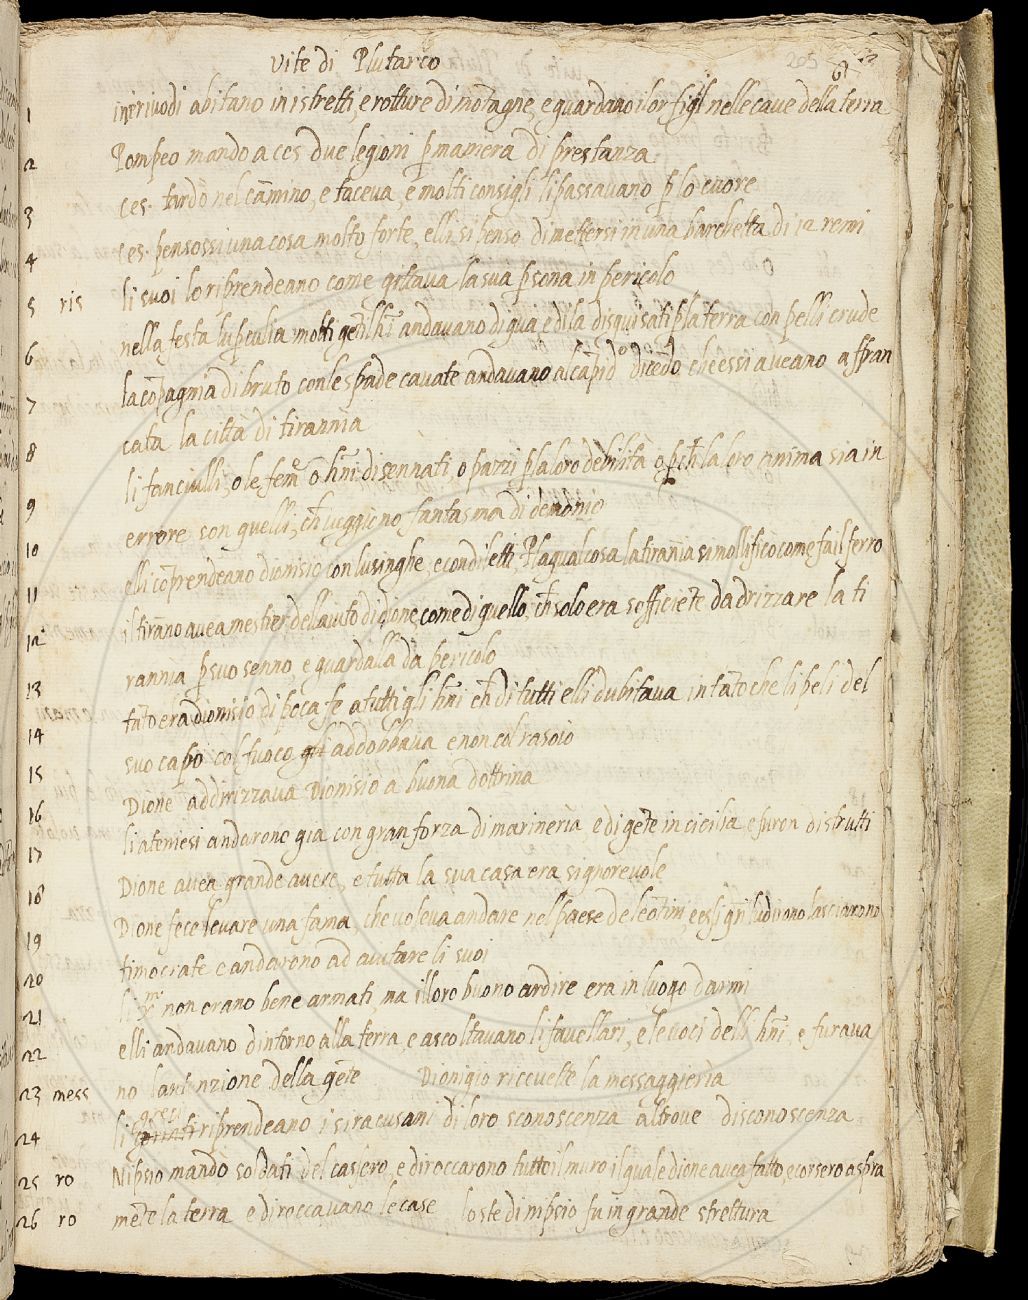 vite di Plutarco
205
61
1 intrivodi abitano in istretti, e rotture di mōtagne, e guardano i lor figli nelle cave della terra
2 Pompeo mando a ces due legioni p maniera di prestanza
3 ces. tardo nel cāmino, e taceva, e molti consigli li passavano p lo cuore
4 ces. pensossi una cosa molto forte, elli si penso di mettersi in una barchetta di 12 remi
5 ris li suoi lo riprendeano come gittava la sua psona in pericolo
6 nella festa lupculia molti gētilhi andavano di qua e di la disguisati p la terra con pelli crude
7 la cōpagnia di bruto con le spade cavate andavano al cāpid° dicēdo che essi aveano affran
8 cata la città di tirannia
9 li fanciulli, o le femē o hni disennati, o pazzi p la loro debiltà o pch la loro anima sia in
10 errore son quelli, ch veggieno fantasma di demonio
11 elli cōprendeano dionisio con lusinghe, e con diletti, Pla qual cosa la tirānia si mollifico come fa il ferro
12 il tirāno avea mestier dell aiuto di dione, come di quello, ch solo era sofficiēte da drizzare la ti
13 rannia p suo senno, e guardalla da pericolo
14 tāto era dionisio di poca fe a tutti gli hni ch di tutti elli dubitava in tāto che li peli del
15 suo capo col fuoco addobbava e non col rasoio
16 Dione addirizzava Dionisio a buona dottrina
17 li ateniesi andarono gia con gran forza di marineria e di gēte in cicilia e furon distrutti
18 Dione avea grande avere, e tutta la sua casa era signorevole
19 Dione fece levare una fama, che voleva andare nel paese de leōtini, e essi qn ludirono lasciarono
20 timocrate e andarono ad aiutare li suoi
21 li non erano bene armati, ma il loro buono ardire era in luogo darmi
22 elli andavano dintorno alla terra, e ascoltavano li favellari, e le voci delli hni, e furava
23 mess no lantenzione della gēte Dionigio ricevette la messaggieria
24 li greci riprendeano i siracusani di loro sconoscenza altrove disconoscenza
25 ro Nipsio mandò soldati del casiero, e diroccarono tutto il muro il quale dione avea fatto, e corsero aspra
26 ro mēte la terra e diroccavano le case loste di nipsio fu in grande strettura